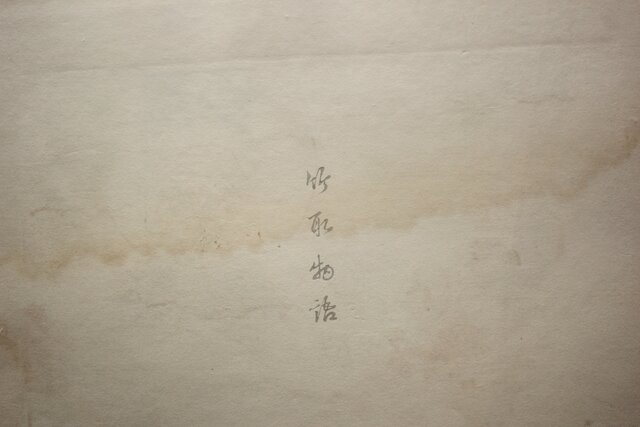 竹取物語